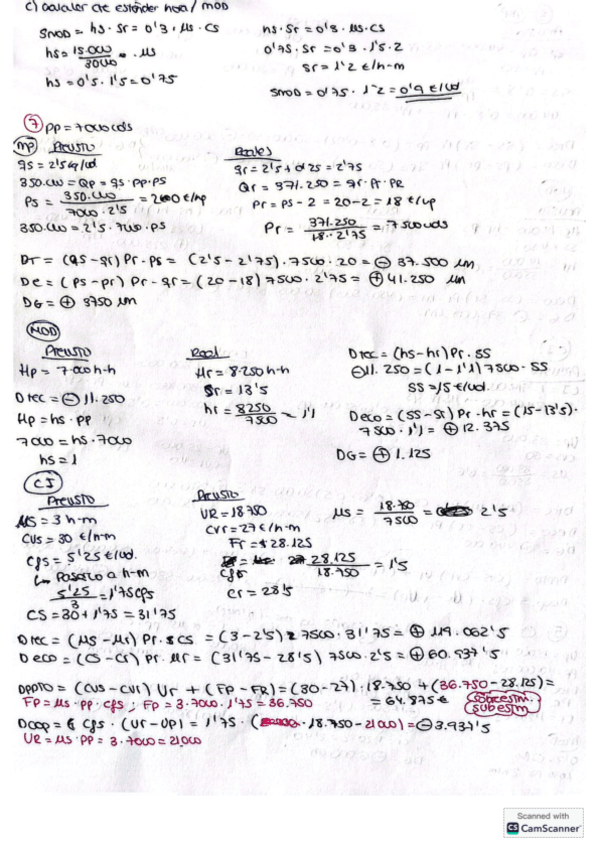 c) Calcular cte estándar hora / MOD
SMOD = hs · Sr = 0'3 · μs · CS
hs = 15.000 / 3000 · μs
hs = 0'5 · 1'5 = 0'75
hs · Sr = 0'3 · μs · CS
0'75 · Sr = 0'3 · 1'5 · 2
Sr = 1'2 €/h-m
SMOD = 0'75 · 1'2 = 0'9 €/ud
7 PP = 7000 uds
MP Previsto
qs = 2'5 kg/ud
350.000 = Qp = qs · PP · PS
PS = 350.000 / 7000 · 2'5 = 20 €/kg
350.000 = 2'5 · 7000 · PS
Reales
qr = 2'5 + 0'25 = 2'75
Qr = 371.250 = qr · Pr · PR
Pr = PS - 2 = 20 - 2 = 18 €/kg
Pr = 371.250 / 18 · 2'75 = 7500 uds
DT = (qs - qr) Pr · ps = (2'5 - 2'75) · 7500 · 20 = ⊖ 37.500 um
DE = (ps - pr) Pr · qr = (20 - 18) 7500 · 2'75 = ⊕ 41.250 um
DG = ⊕ 3750 um
MOD
Previsto
Hp = 7000 h-h
Dtec = ⊖ 11.250
Hp = hs · PP
7000 = hs · 7000
hs = 1
Real
Hr = 8.250 h-h
Sr = 13'5
hr = 8250 / 7500 = 1'1
Dtec = (hs - hr) Pr · SS
⊖ 11.250 = (1 - 1'1) 7500 · SS
SS = 15 €/ud.
Deco = (SS - Sr) Pr · hr = (15 - 13'5) ·
7500 · 1'1 = ⊕ 12.375
DG = ⊕ 1.125
CI
Previsto
μs = 3 h-m
CVS = 30 €/h-m
Cfs = 5'25 €/ud.
Pasarlo a h-m
5'25 / 3 = 1'75 cfs
CS = 30 + 1'75 = 31'75
Previsto
UR = 18750
CVr = 27 €/h-m
Fr = 28.125
Cfr 28.125 / 18.750 = 1'5
Cr = 28'5
μs = 18.750 / 7500 = 2'5
Dtec = (μs - μr) Pr · CS = (3 - 2'5) 7500 · 31'75 = ⊕ 119.062'5
Deco = (CS - Cr) Pr · μr = (31'75 - 28'5) 7500 · 2'5 = ⊕ 60.937'5
DPPTO = (CVS - CVr) Ur + (FP - FR) = (30 - 27) · 18.750 + (36.750 - 28.125) =
FP = μs · PP · Cfs ; FP = 3 · 7000 · 1'75 = 36.750
= 64.875 €
subestm
Dcap = Cfs · (UR - UP) = 1'75 · (18.750 - 21000) = ⊖ 3.937'5
UR = μs · PP = 3 · 7000 = 21000
Scanned with
CS CamScanner